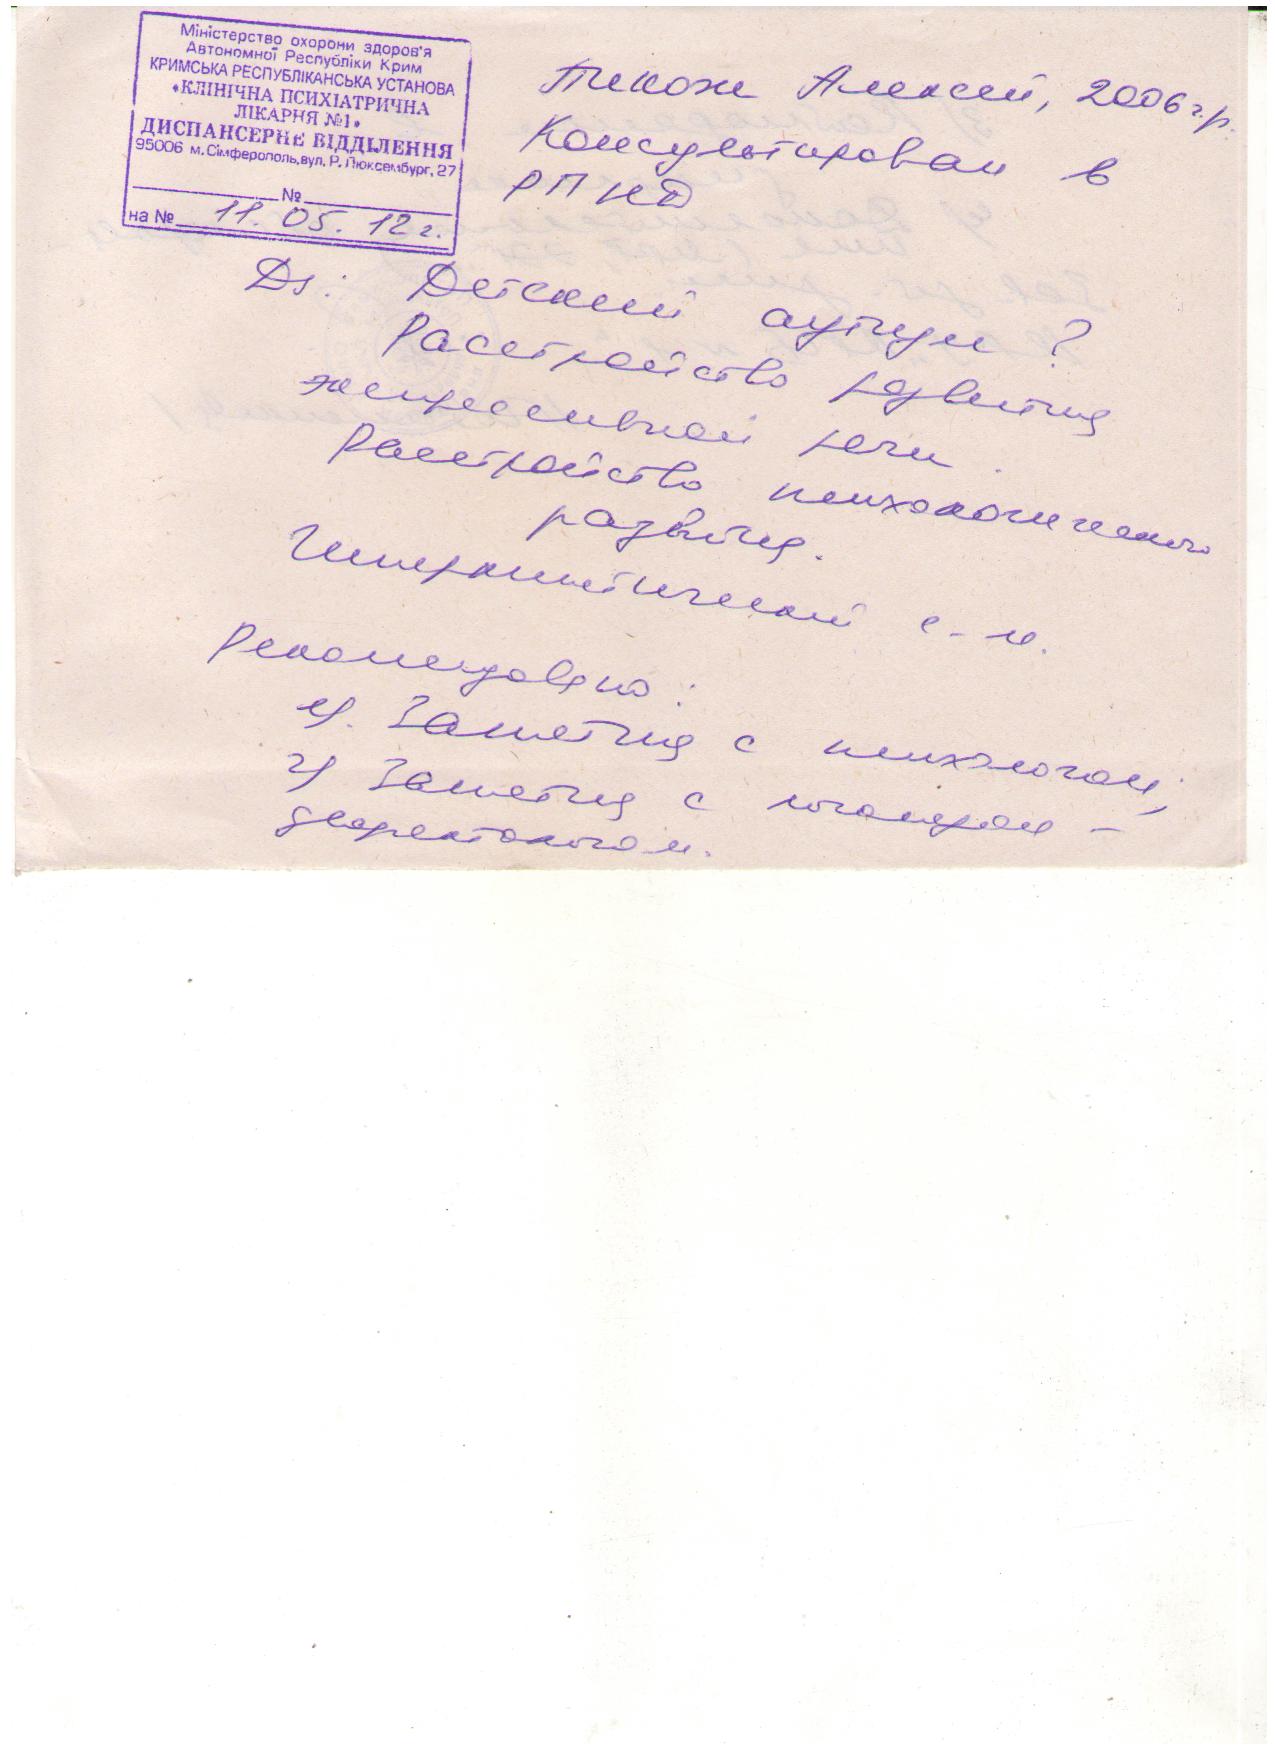 Міністерство охорони здоров'я
Автономної Республіки Крим
КРИМСЬКА РЕСПУБЛІКАНСЬКА УСТАНОВА
«КЛІНІЧНА ПСИХІАТРИЧНА
ЛІКАРНЯ №1»
ДИСПАНСЕРНЕ ВІДДІЛЕННЯ
95006 м.Сімферополь,вул. Р. Люксембург, 27
№
на № 11. 05. 12 г.
Алексей, 2006 г.р.
Консультирован в
РПНД
Ds: Детский аутизм?
Расстройство развития
экспрессивной речи.
Расстройство психологического
развития.
Гиперкинетический с-м.
Рекомендовано:
1). Занятия с психологом;
2) Занятия с логопедом-
дефектологом.